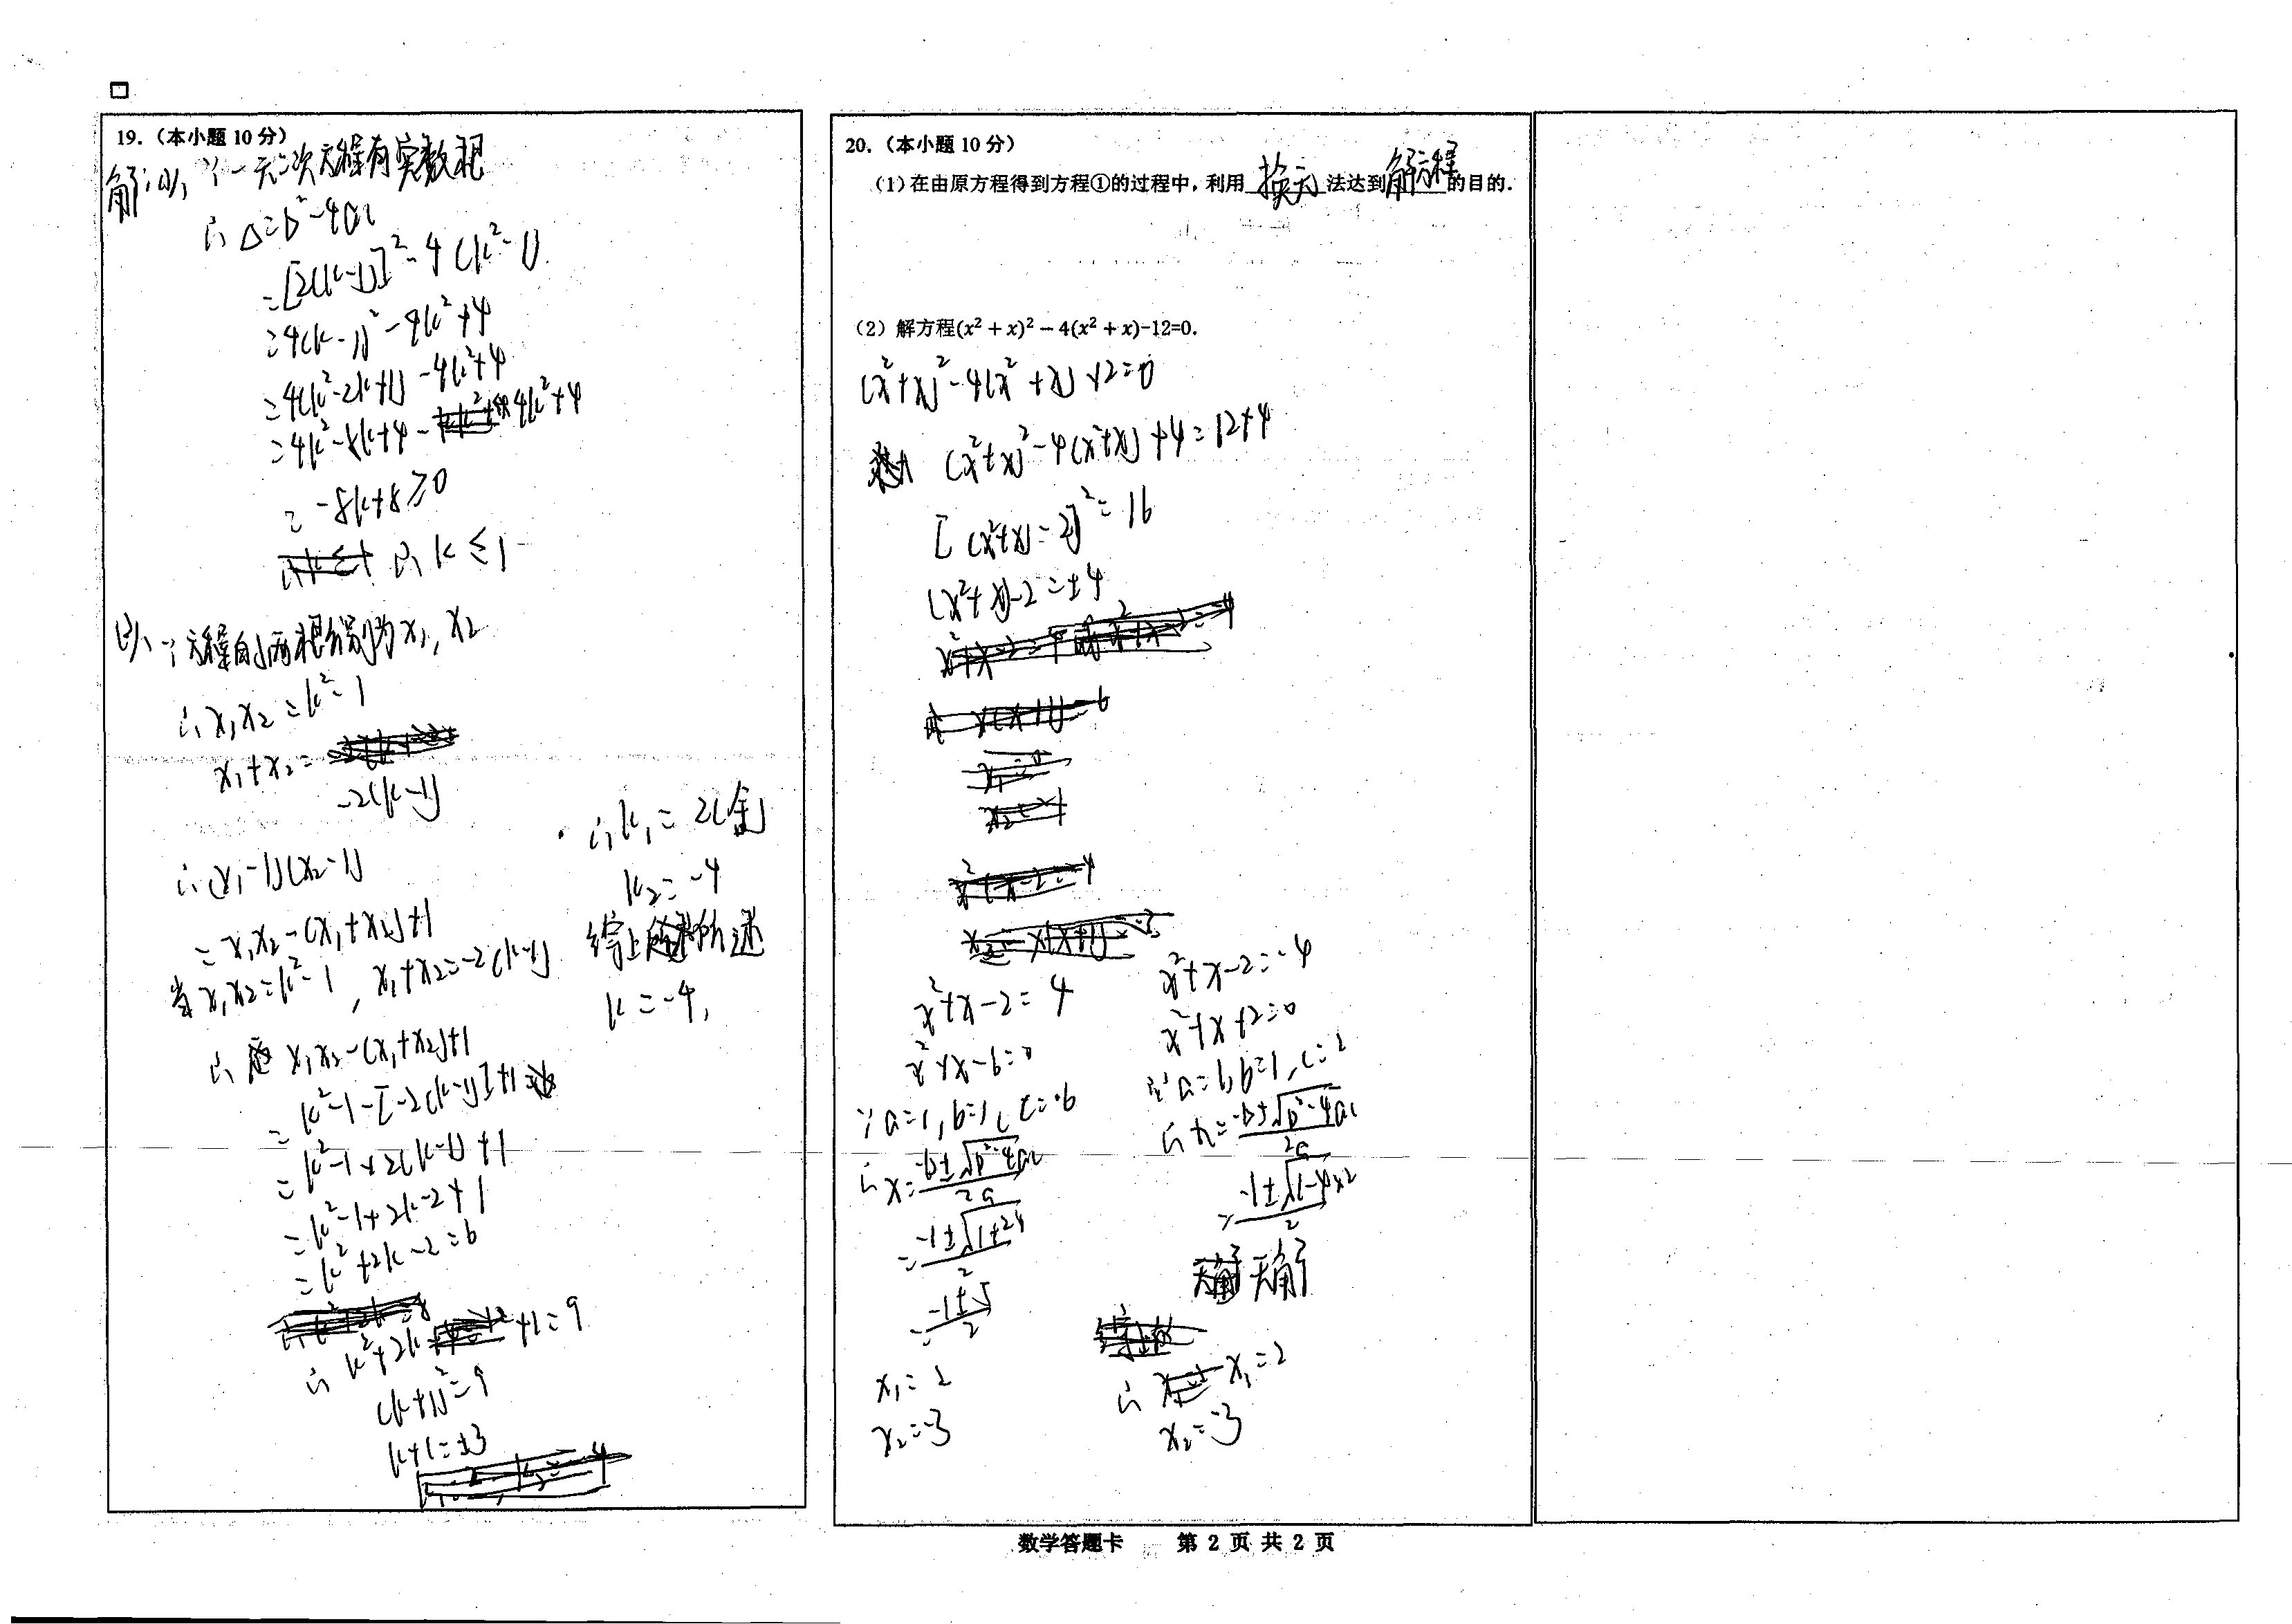 19.（本小题 10 分）
解:(1), ∵一元二次方程有实数根
∴ Δ=b²-4ac
=[2(k-1)]²-4(k²-1)
=4(k-1)²-4k²+4
=4(k²-2k+1)-4k²+4
=4k²-8k+4-4k²+4
=-8k+8≥0
∴ k≤1
(2), ∵方程的两根分别为x₁, x₂
∴x₁x₂=k²-1
x₁+x₂=
-2(k-1)
∴(x₁-1)(x₂-1)
=x₁x₂-(x₁+x₂)+1
当x₁x₂=k²-1, x₁+x₂=-2(k-1)
∴ x₁x₂-(x₁+x₂)+1
=k²-1-[-2(k-1)]+1
=k²-1+2(k-1)+1
=k²-1+2k-2+1
=k²+2k-2=6
∴ k²+2k+1=9
(k+1)²=9
k+1=±3
∴k₁=2(舍)
k₂=-4
综上所述
k=-4,
20.（本小题 10 分）
（1）在由原方程得到方程①的过程中，利用 换元 法达到 解方程 的目的.
（2）解方程(x² + x)² − 4(x² + x)-12=0.
(x²+x)²-4(x²+x)-12=0
(x²+x)²-4(x²+x)+4=12+4
[(x²+x)-2]²=16
(x²+x)-2=±4
x²+x-2=4
x²+x-6=0
∵a=1, b=1, c=-6
∴x=\frac{-b±\sqrt{b²-4ac}}{2a}
=\frac{-1±\sqrt{1+24}}{2}
=\frac{-1±5}{2}
x₁=2
x₂=-3
x²+x-2=-4
x²+x+2=0
∵a=1, b=1, c=2
∴x=\frac{-b±\sqrt{b²-4ac}}{2a}
=\frac{-1±\sqrt{1-4×2}}{2}
无解
∴ x₁=2
x₂=-3
数学答题卡 第 2 页 共 2 页